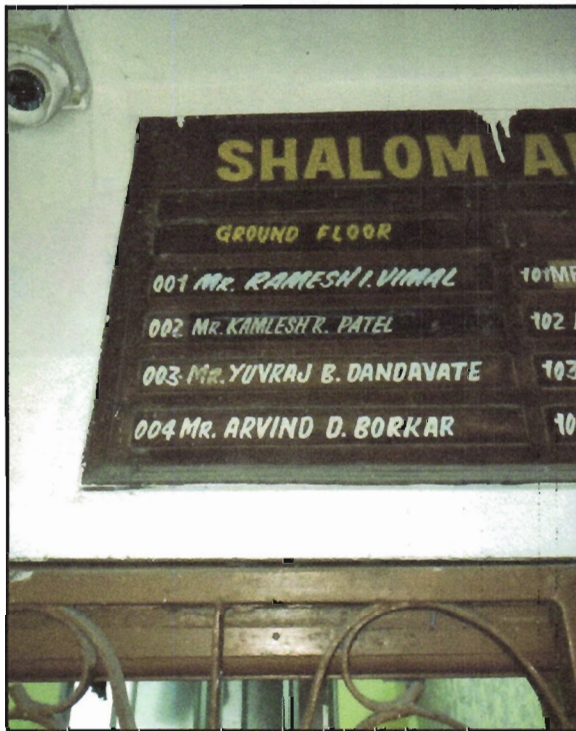 SHALOM
GROUND FLOOR
001 MR. RAMESH I. VIMAL
002 MR. KAMLESH R. PATEL
003 MR. YUVRAJ B. DANDAVATE
004 MR. ARVIND D. BORKAR
101
102
103